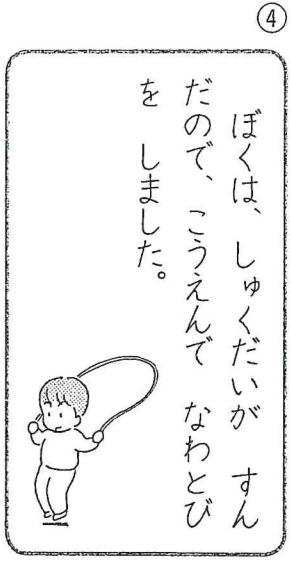 ④
ぼくは、しゅくだいが　すん
だので、こうえんで　なわとび
を　しました。